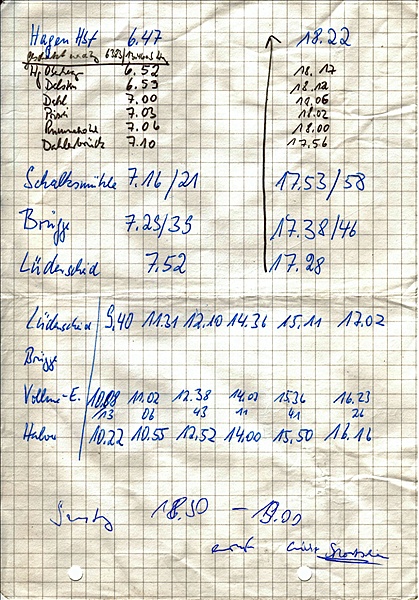 Hagen Hbf 6.47 18.22
Hg 6.52 18.17
6.59 18.12
Dahl 7.00 18.06
7.03 18.02
7.06 18.00
Dahlerbrück 7.10 17.56
Schalksmühle 7.16/21 17.53/58
Brügge 7.29/39 17.38/46
Lüdenscheid 7.52 17.28
Lüdenscheid 9.40 11.31 12.10 14.36 15.11 17.02
Brügge
Vollme-E. 10.08 11.02 12.38 14.07 15.36 16.23
13 06 43 11 41 26
Halver 10.22 10.55 12.52 14.00 15.50 16.16
18.50 – 19.00